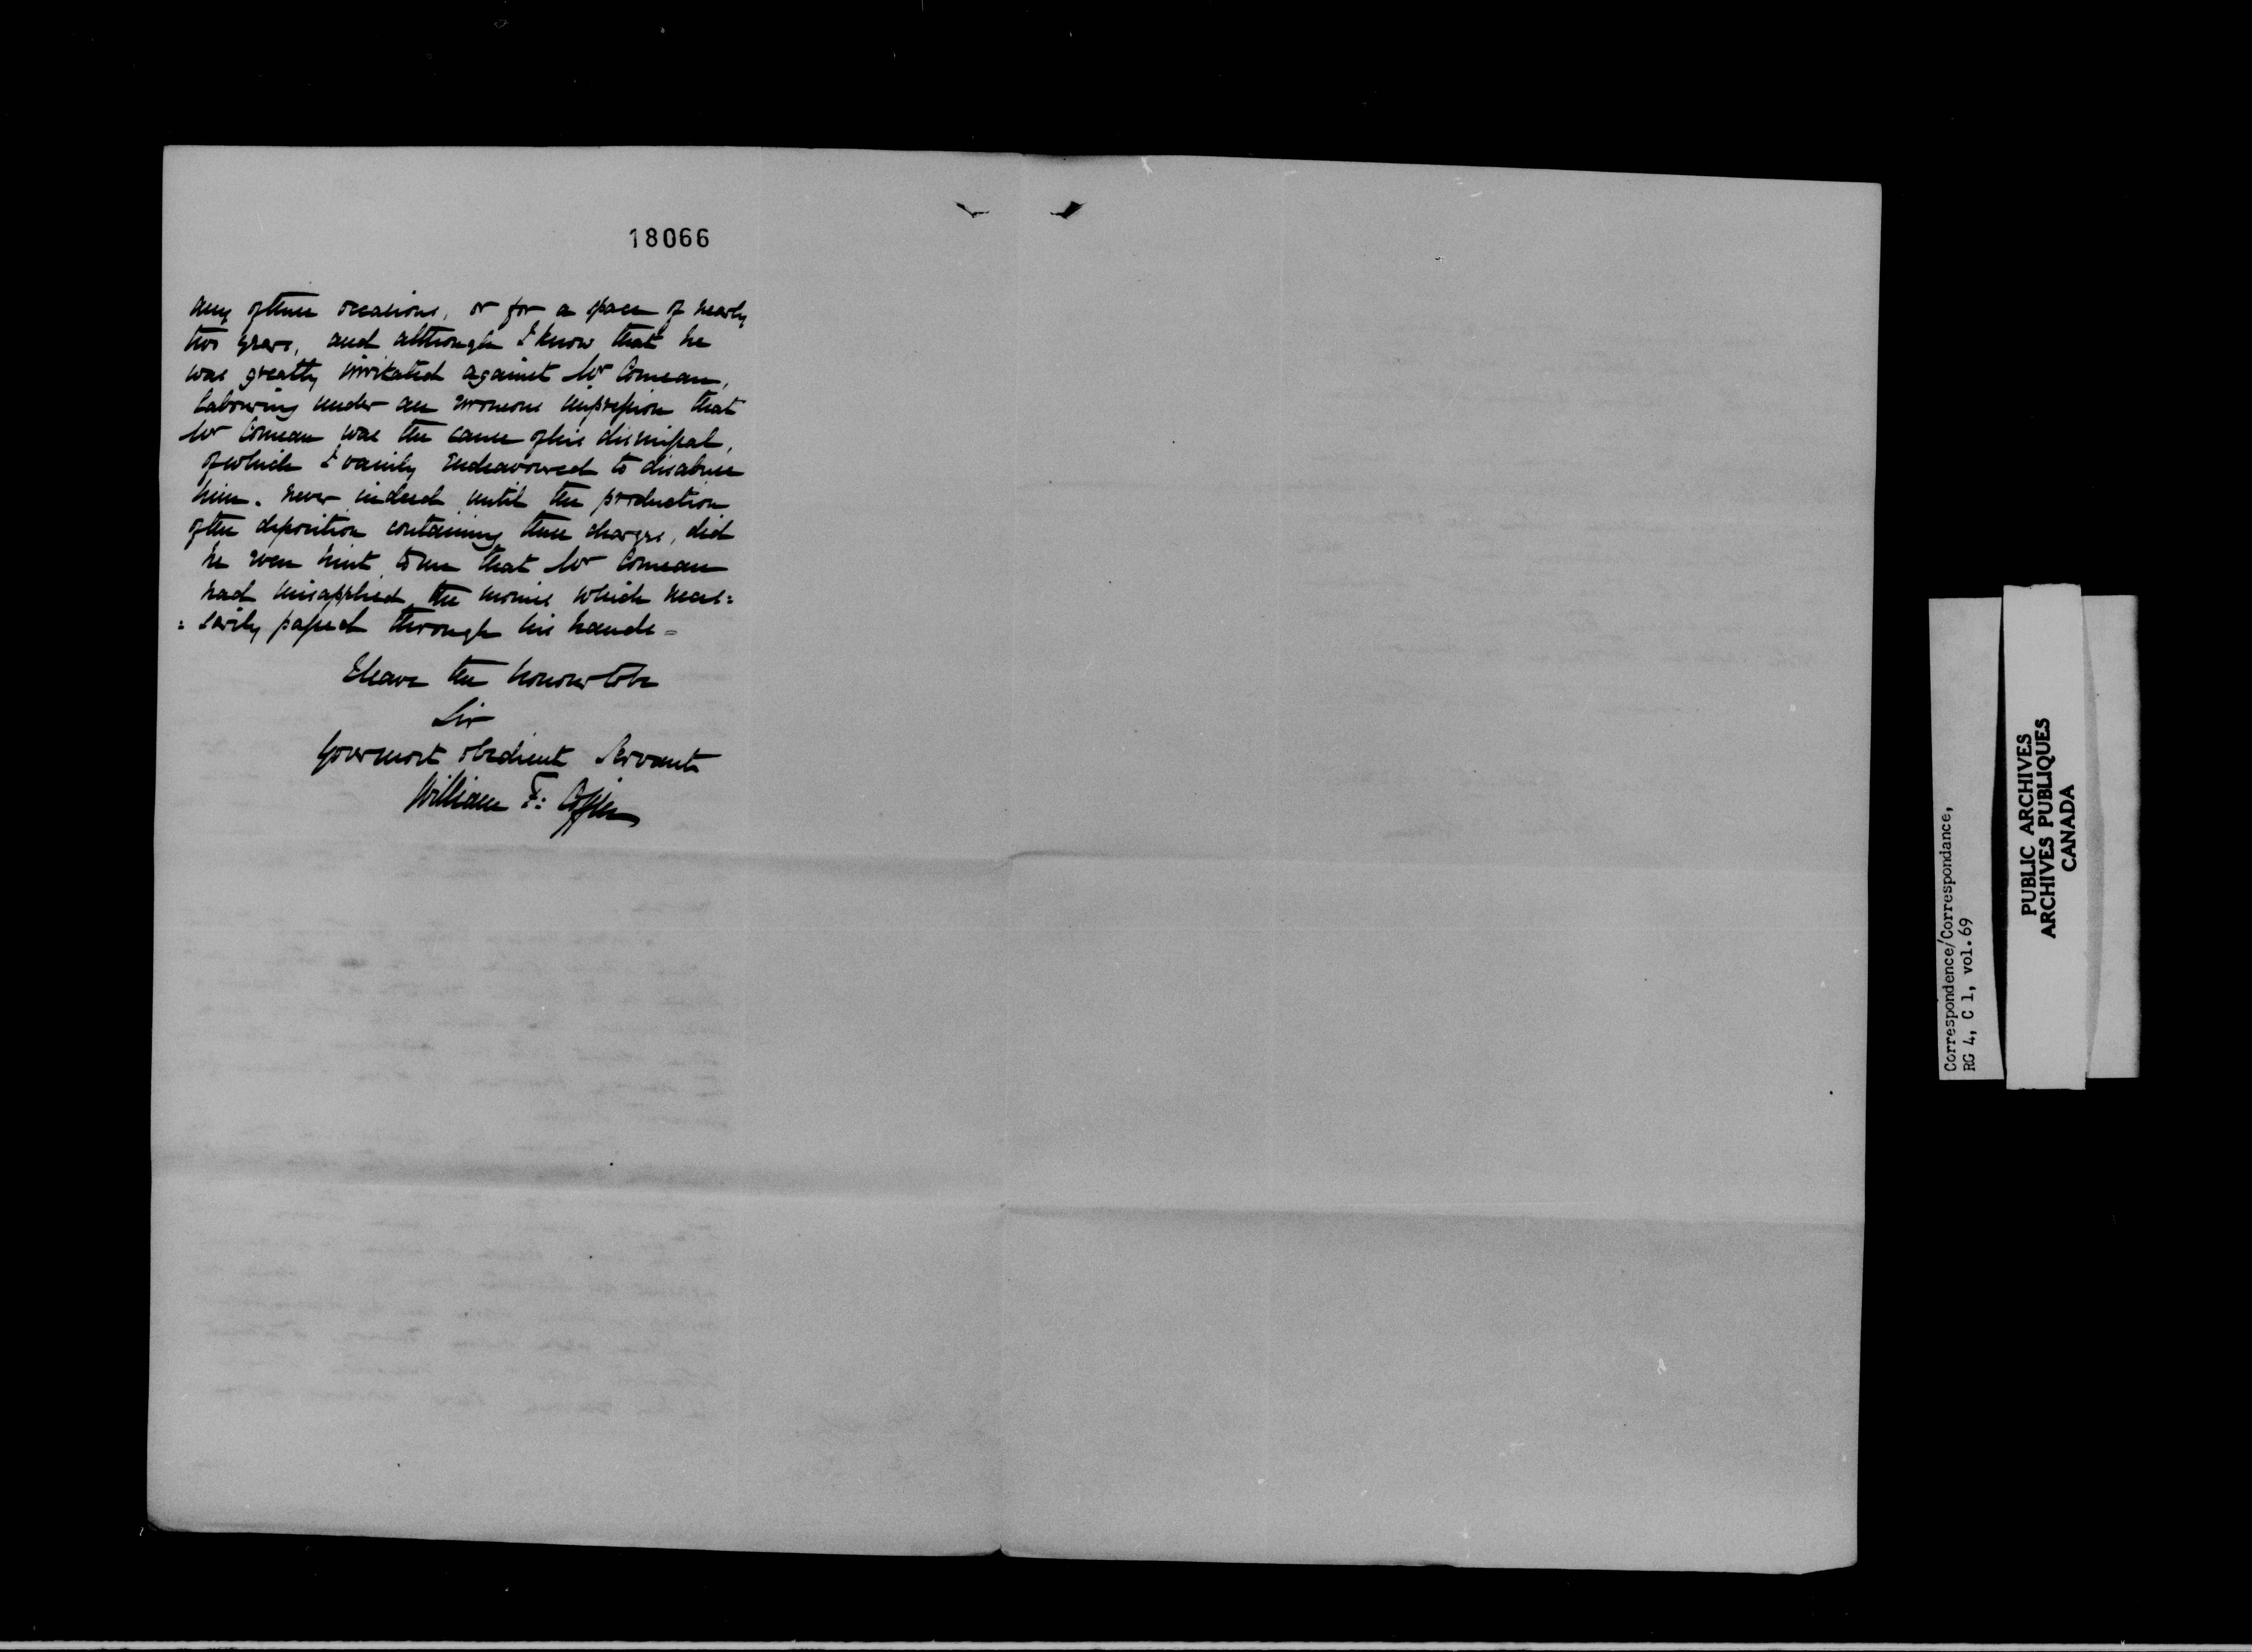 18066
any of these occasions, or for a space of nearly
two years, and although I know that he
was greatly irritated against Mr Comeau,
labouring under an erroneous impression that
Mr Comeau was the cause of his dismissal,
of which I vainly endeavoured to disabuse
him. Never indeed until the production
of the deposition containing these charges, did
he even hint to me that Mr Comeau
had misapplied the monies which neces=
=sarily passed through his hands =
I have the honour to be
Sir
Your most obedient Servant
William F: Coffin
Correspondence/Correspondance,
RG 4, C 1, vol.69
PUBLIC ARCHIVES
ARCHIVES PUBLIQUES
CANADA